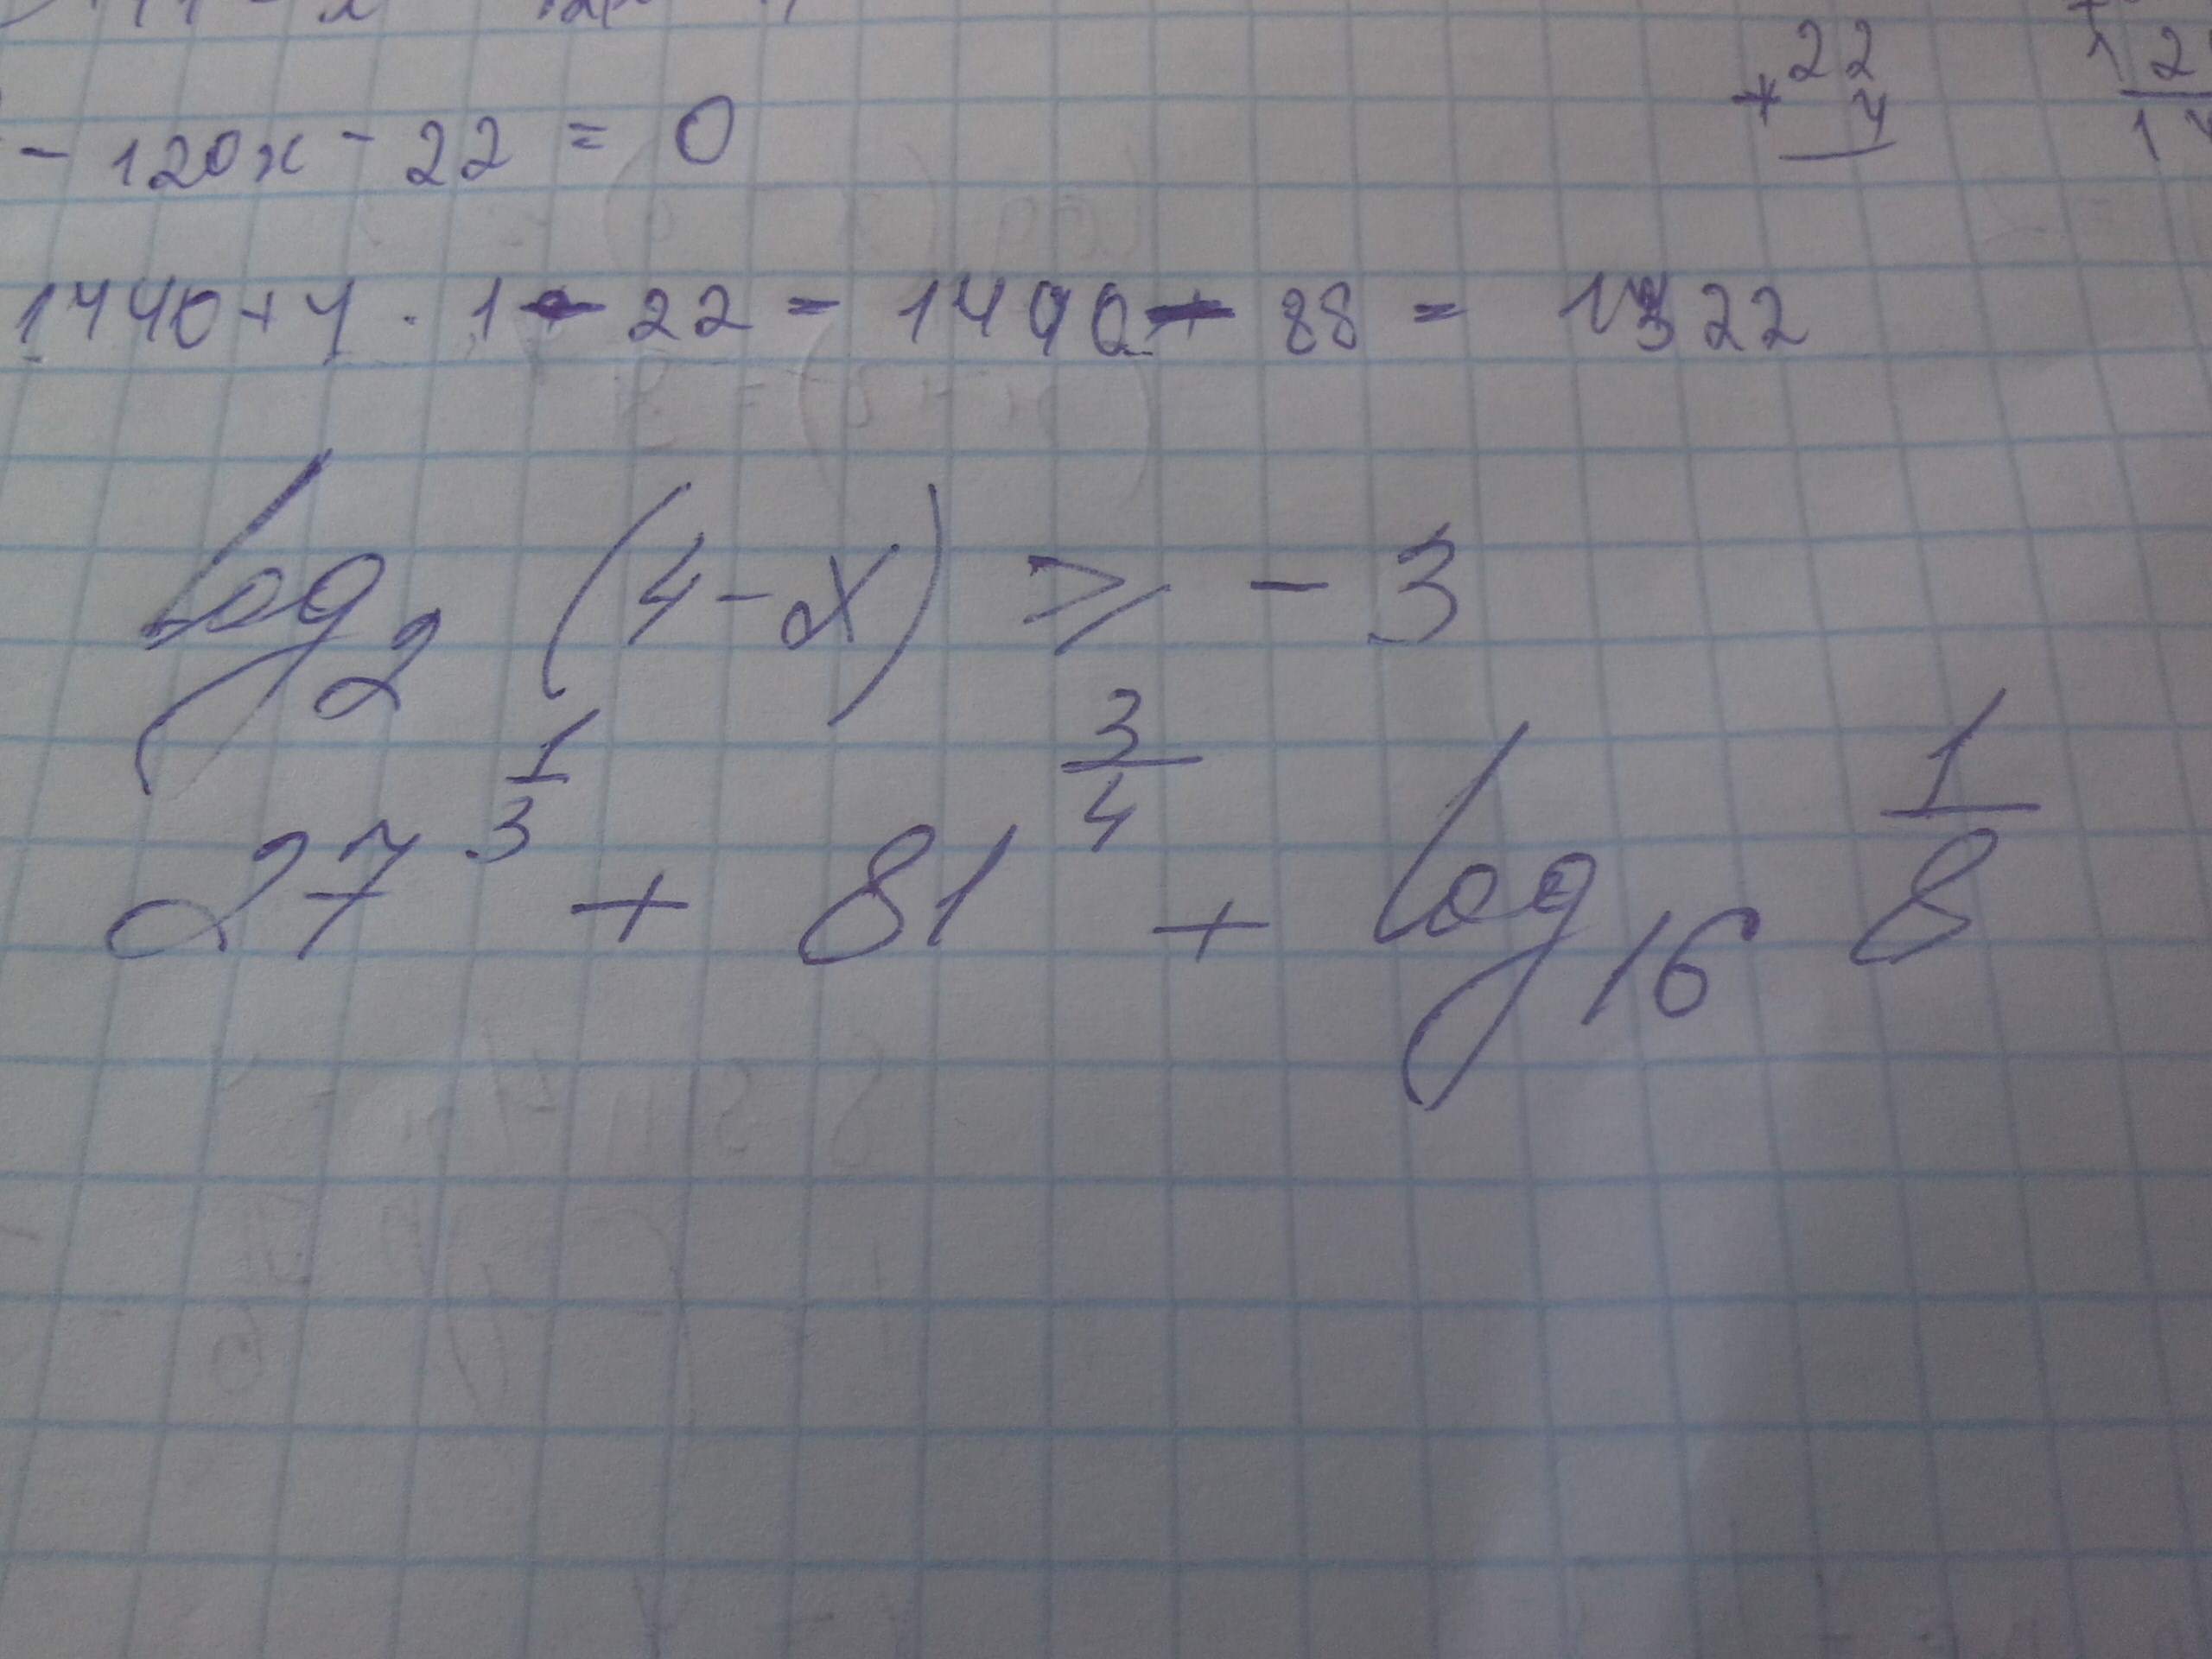 - 120x - 22 = 0
22
+ 4
1440 + 4 · 1 - 22 = 1440 - 88 = 1322
log₂ (4 - x) ⩾ - 3
27^(1/3) + 81^(3/4) + log₁₆ 1/8